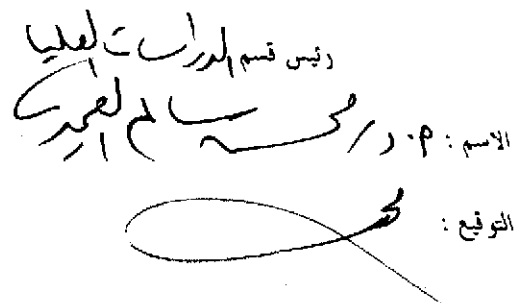 رئيس قسم الدراسات العليا
الاسم : م. د / محمد سالم العميري
التوقيع :